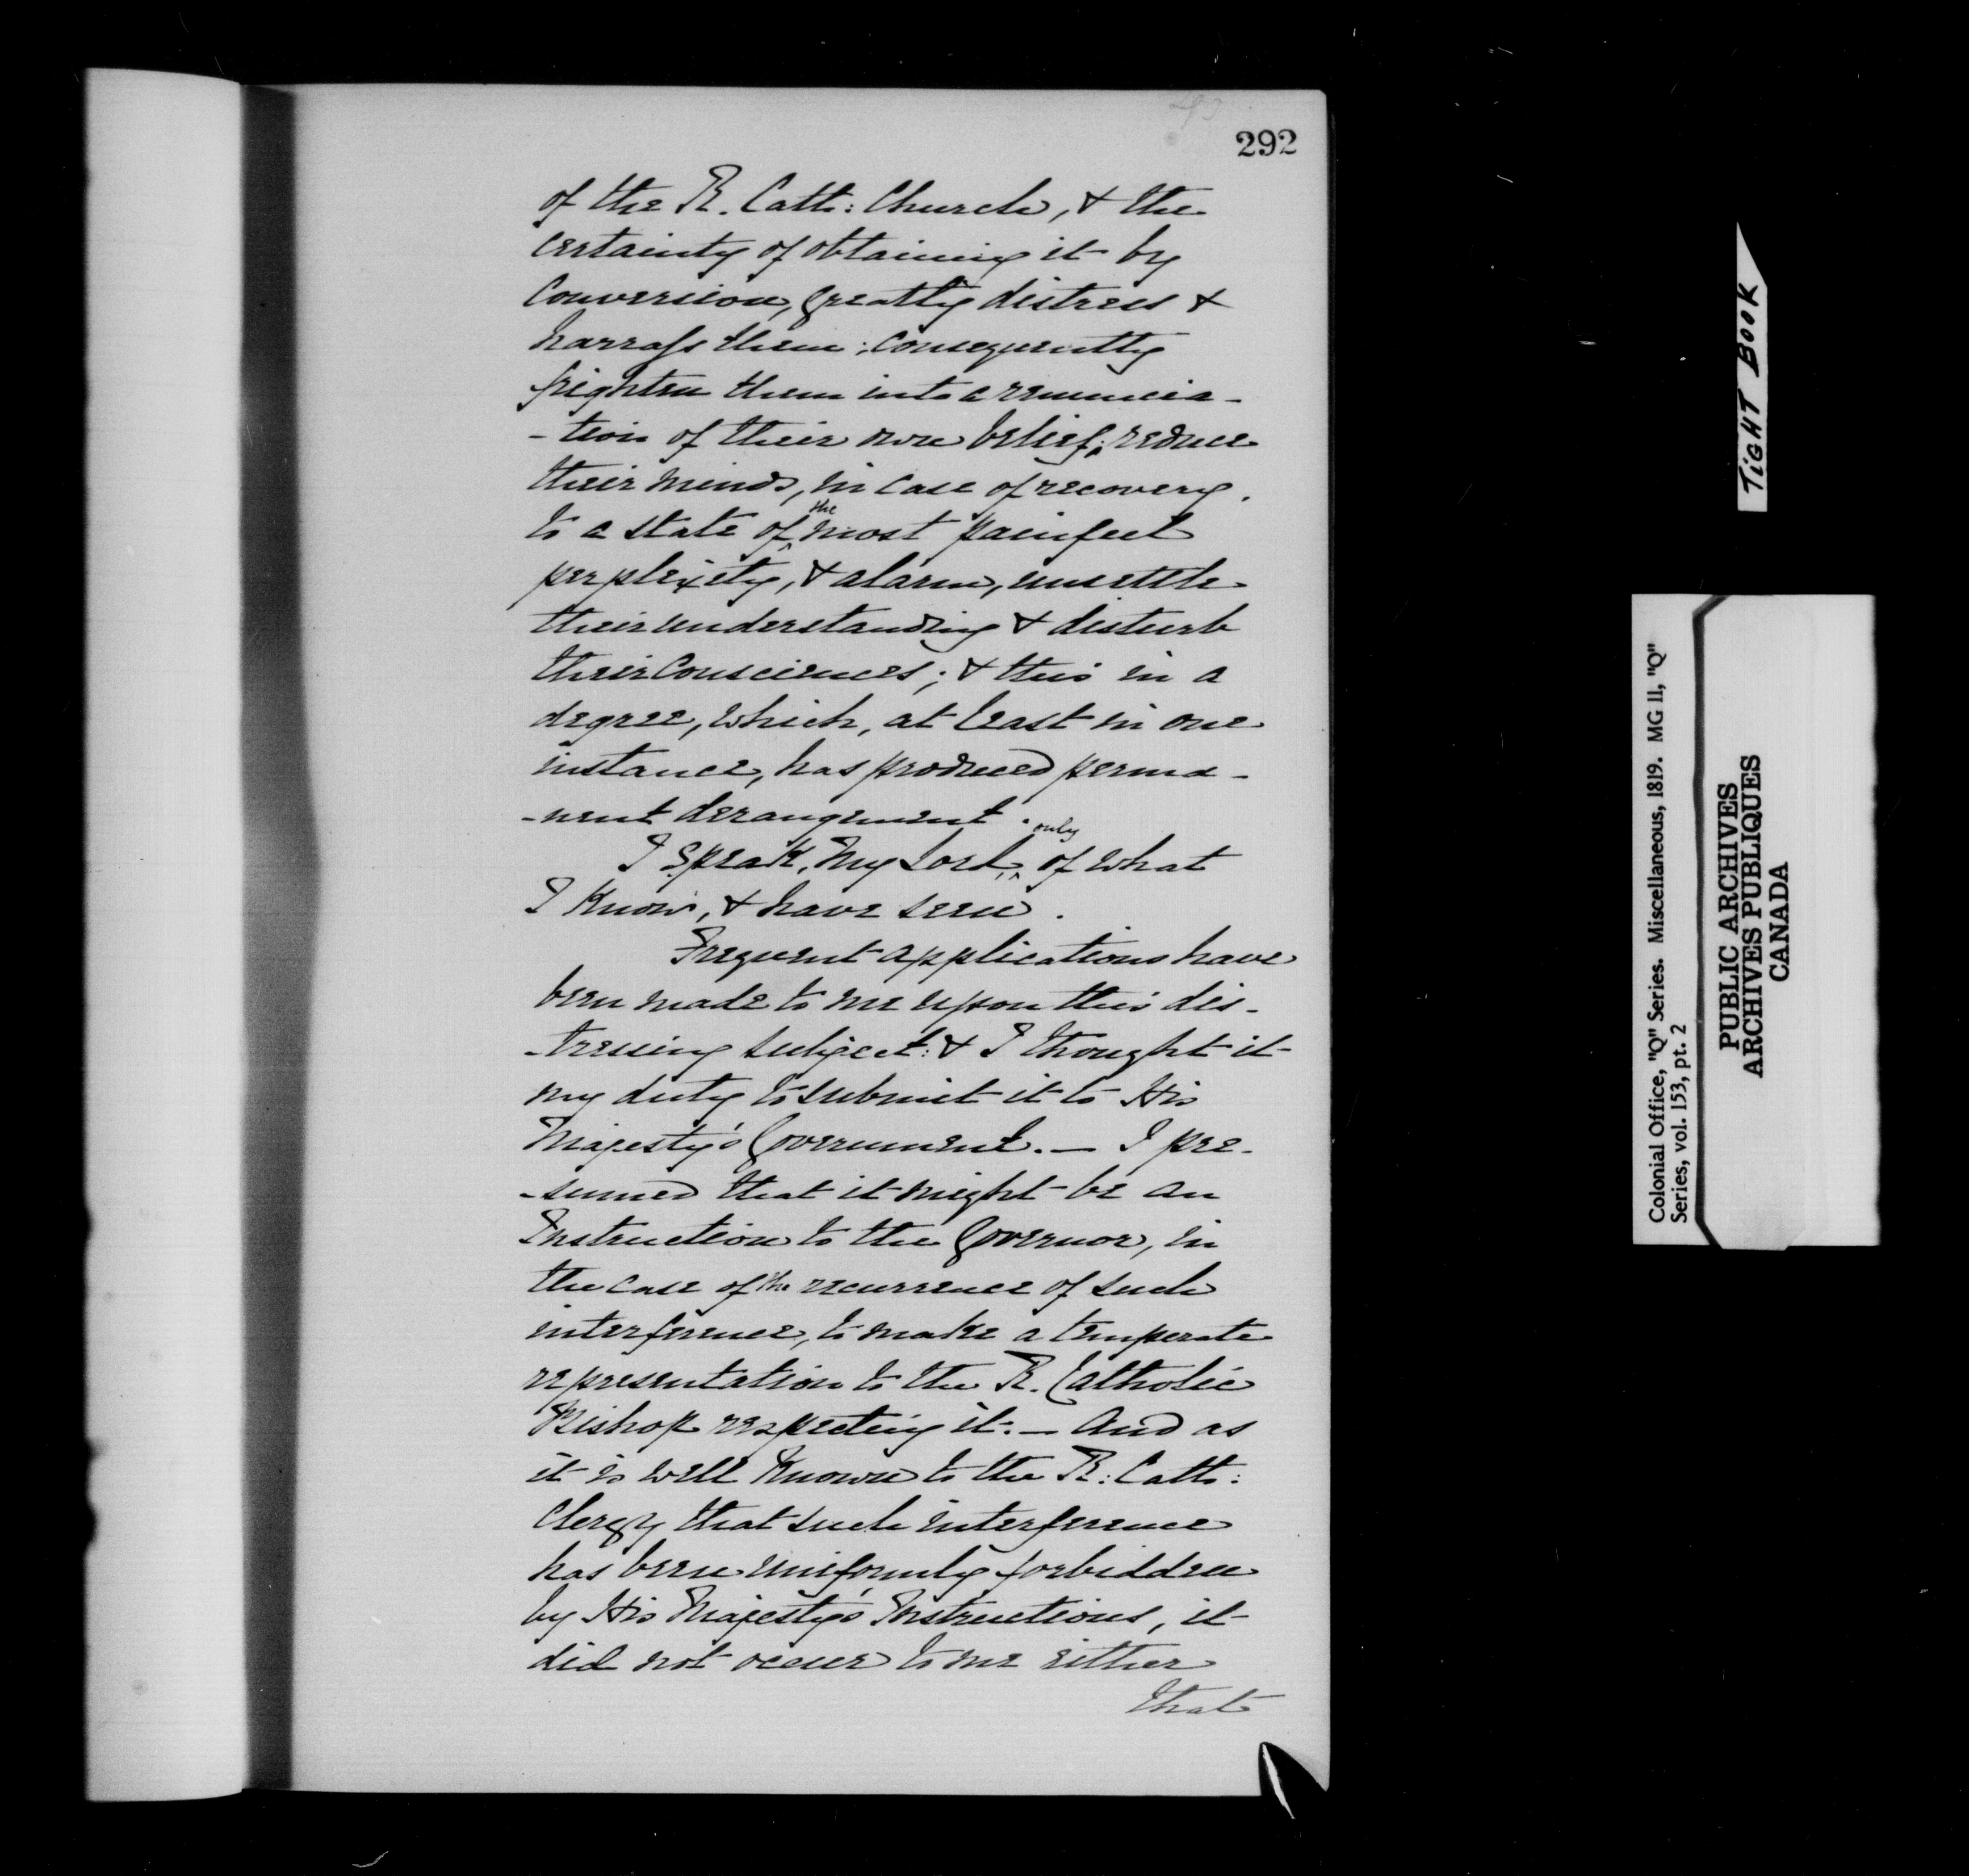 292
of the R. Cath: Church, & the
certainty of obtaining it by
Conversion, greatly distress &
harrass them; consequently
frighten them into a renuncia-
-tion of their own belief; reduce
their minds, in case of recovery,
to a state of the most painful
perplexity, & alarm, unsettle
their understanding & disturb
their Consciences; & this in a
degree, which, at least in one
instance, has produced perma-
-nent derangement.
I speak, My Lord, only of what
I know, & have seen.
Frequent applications have
been made to me upon this dis-
-tressing subject: & I thought it
my duty to submit it to His
Majesty's Government. — I pre-
-sumed that it might be an
Instruction to the Governor, in
the case of the recurrence of such
interference, to make a temperate
representation to the R. Catholic
Bishop respecting it. — And as
it is well known to the R: Cath:
Clergy that such interference
has been uniformly forbidden
by His Majesty's Instructions, it
did not occur to me either
that
TIGHT BOOK
Colonial Office, "Q" Series. Miscellaneous, 1819. MG 11, "Q"
Series, vol. 153, pt. 2
PUBLIC ARCHIVES
ARCHIVES PUBLIQUES
CANADA